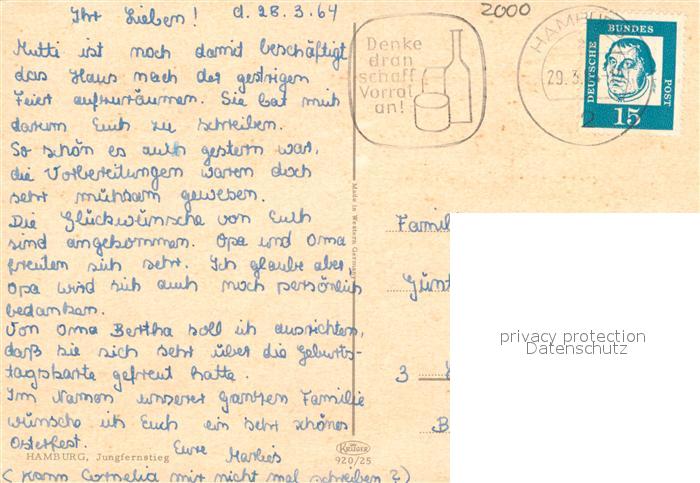 Ihr Lieben! d. 28.3.64
Mutti ist noch damit beschäftigt
das Haus nach der gestrigen
Feier aufzuräumen. Sie bat mich
darum Euch zu schreiben.
So schön es auch gestern war,
die Vorbereitungen waren doch
sehr mühsam gewesen.
Die Glückwünsche von Euch
sind angekommen. Opa und Oma
freuten sich sehr. Ich glaube aber,
Opa wird sich auch noch persönlich
bedanken.
Von Oma Bertha soll ich ausrichten,
daß sie sich sehr über die Geburts-
tagskarte gefreut hatte.
Im Namen unserer ganzen Familie
wünsche ich Euch ein sehr schönes
Osterfest.
Eure Marlies
(Kann Cornelia mir nicht mal schreiben?)
HAMBURG, Jungfernstieg
Made in Western Germany
KRÜGER
920/25
2000
Denke
dran
schaff
Vorrat
an!
HAMBURG
29.3.
DEUTSCHE BUNDES POST
15
Famil
Günt
3
B
privacy protection
Datenschutz